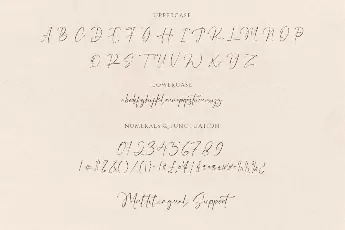 UPPERCASE
A B C D E F G H I J K L M N O P
Q R S T U V W X Y Z
LOWERCASE
abcdefghijklmnopqrstuvwxyz
NUMERALS & PUNCTUATION
0123456789
Multilingual Support